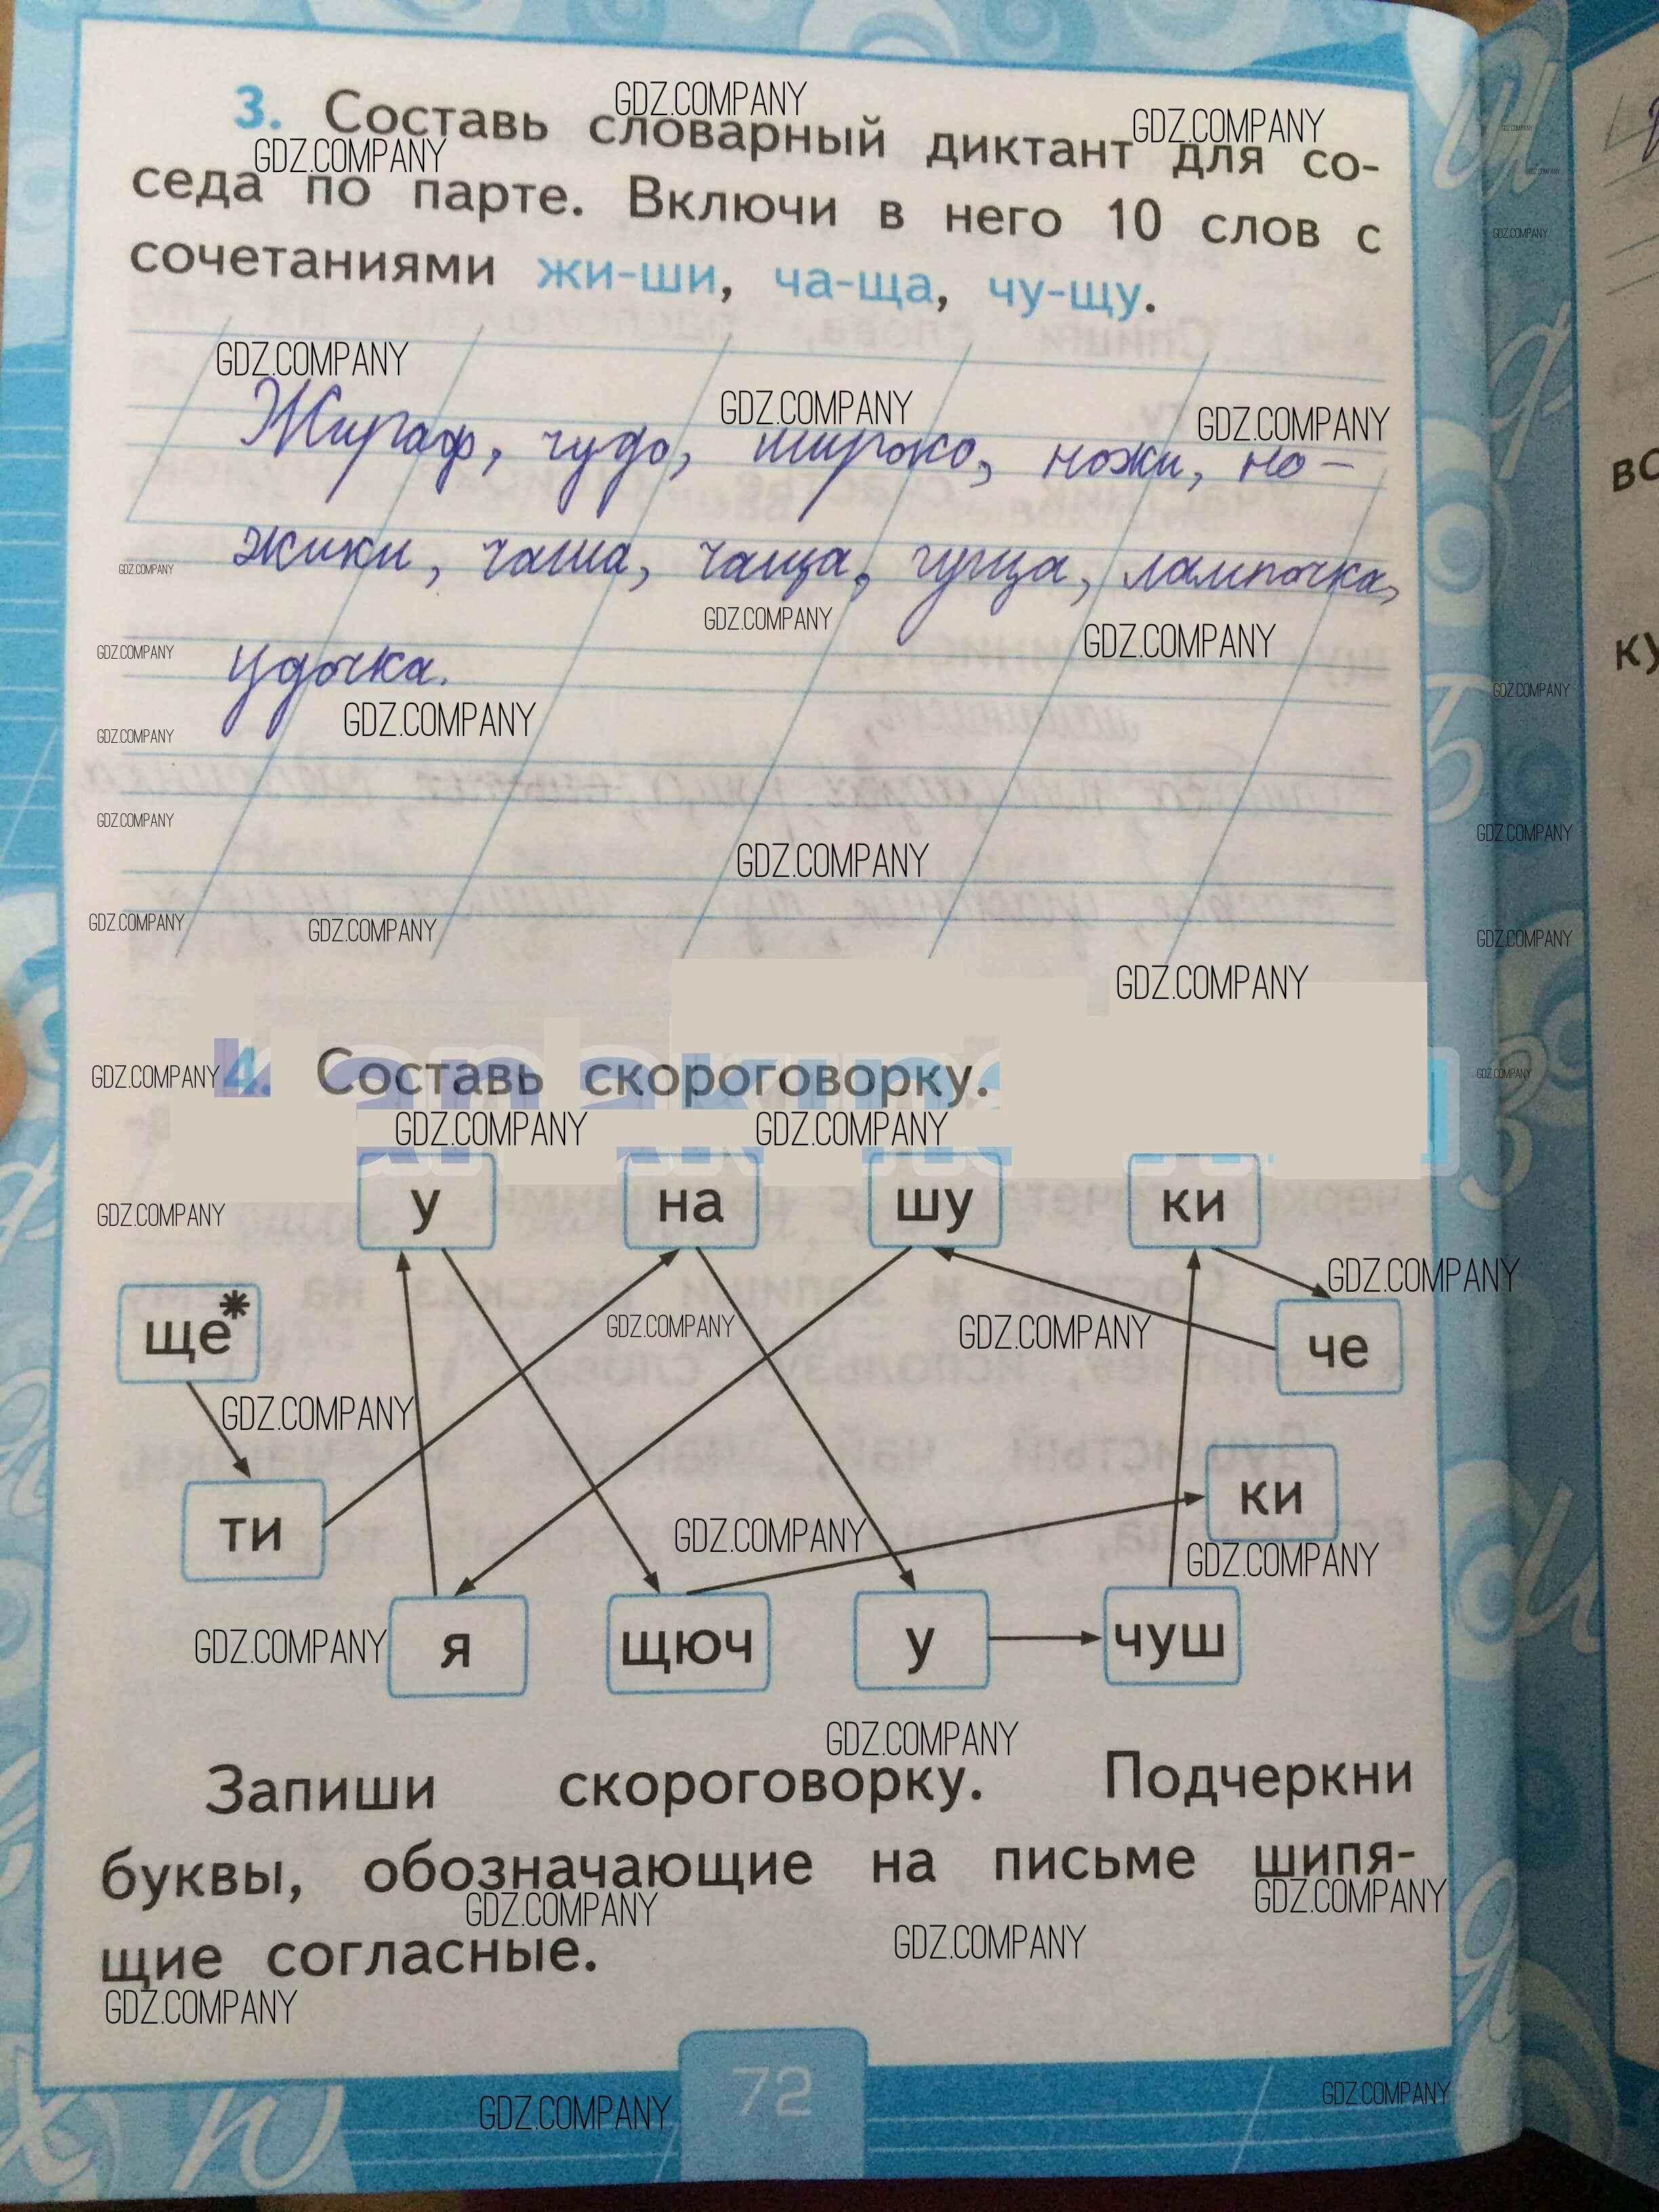 3. Составь словарный диктант для со-
седа по парте. Включи в него 10 слов с
сочетаниями жи-ши, ча-ща, чу-щу.
Жираф, чудо, широко, ножи, но-
жики, чаша, чаща, гуща, лампочка,
удочка.
4. Составь скороговорку.
у на шу ки
ще*
че
ки
ти
я щюч у чуш
Запиши скороговорку. Подчеркни
буквы, обозначающие на письме шипя-
щие согласные.
72
GDZ.COMPANY